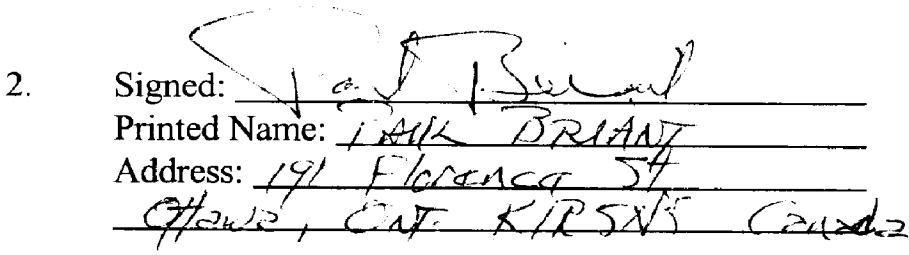 2. Signed: Paul Briant
Printed Name: PAUL BRIANT
Address: 191 Florence St
Ottawa, ONT. K1R5N5 Canada